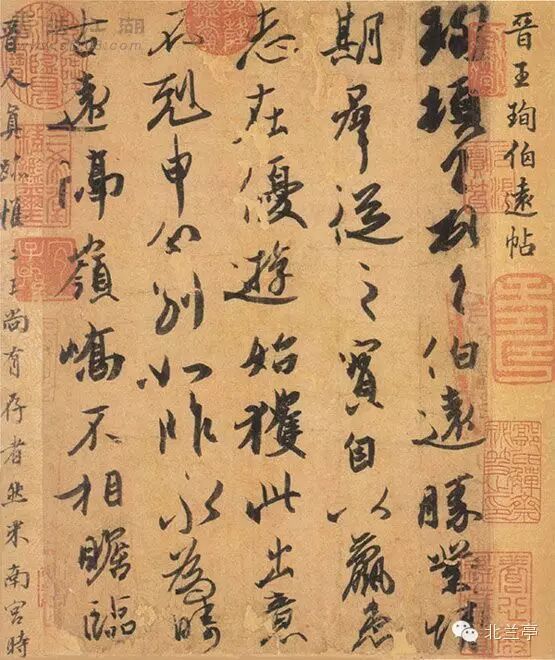 晉王珣伯遠帖
珣頓首頓首伯遠勝業情
期羣從之寶自以羸患
志在優遊始獲此出意
不剋申分別如昨永為疇
古遠隔嶺嶠不相瞻臨
晉人真跡惟二王尚有存者然米南宮時
北兰亭